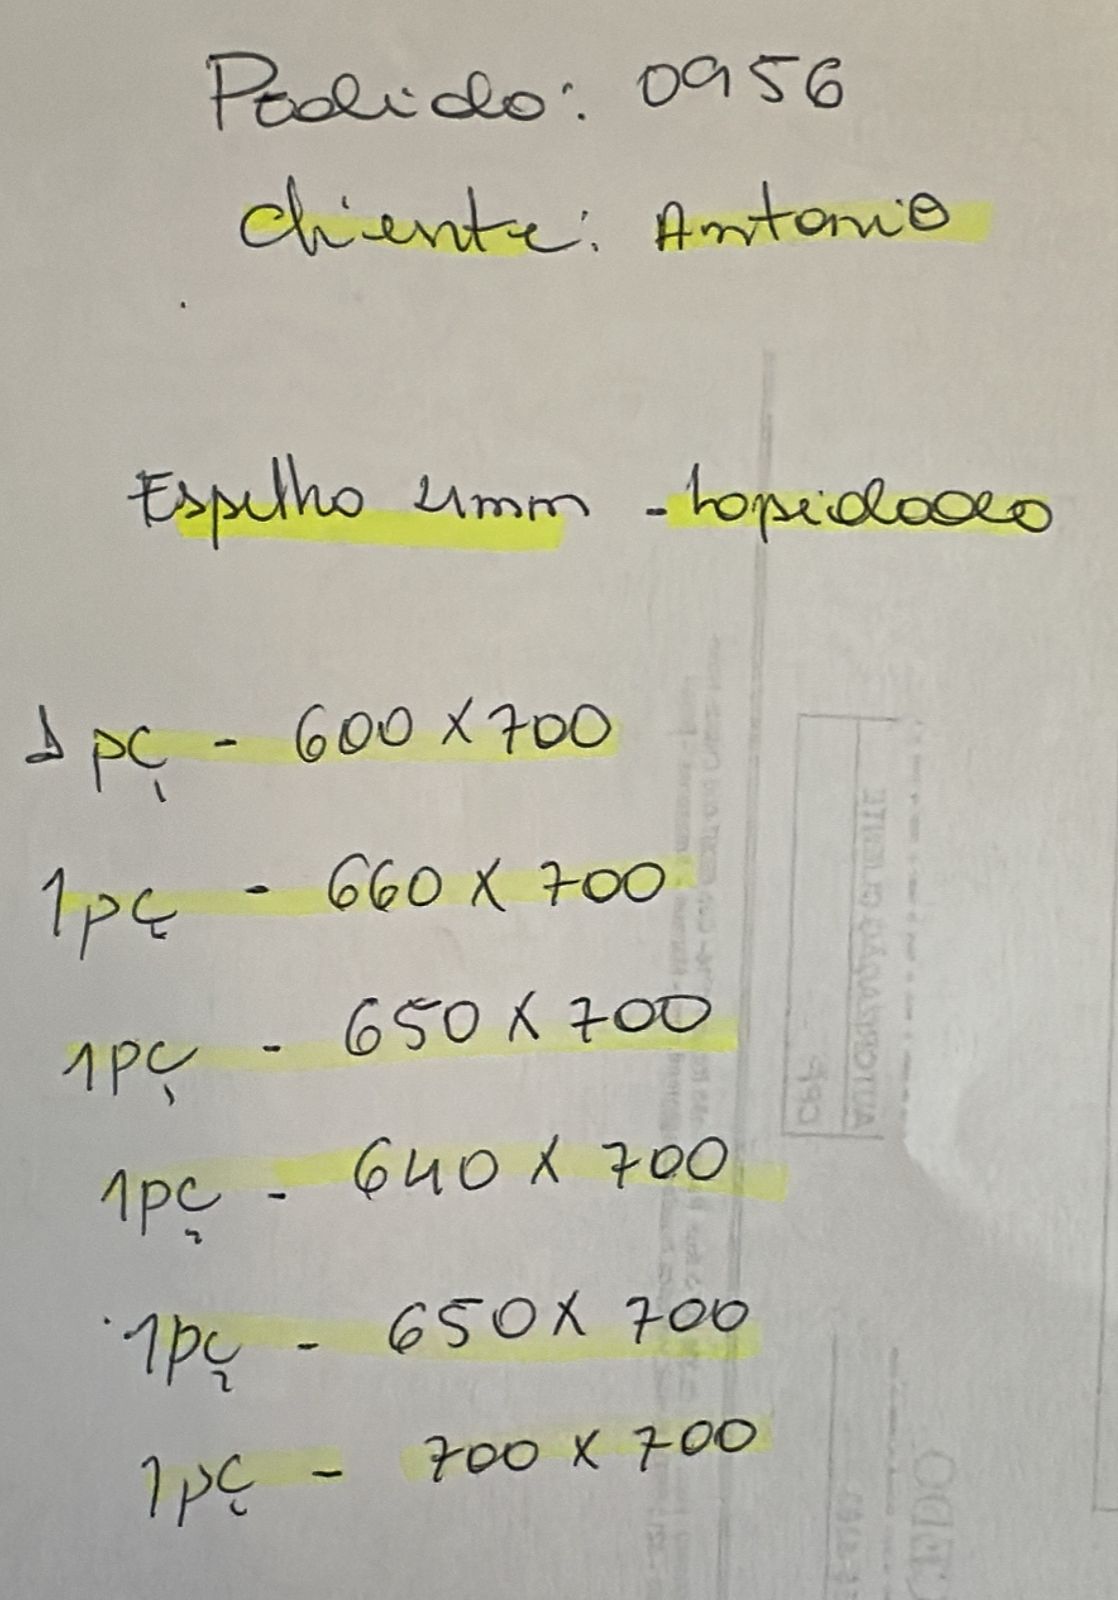 Pedido: 0956
Cliente: Antonio
Espelho 4mm - Lapidado
1 pç - 600 X 700
1pç - 660 X 700
1pç - 650 X 700
1pç - 640 X 700
1pç - 650 X 700
1pç - 700 X 700
CPF
AUTORIZAÇÃO CLIENTE